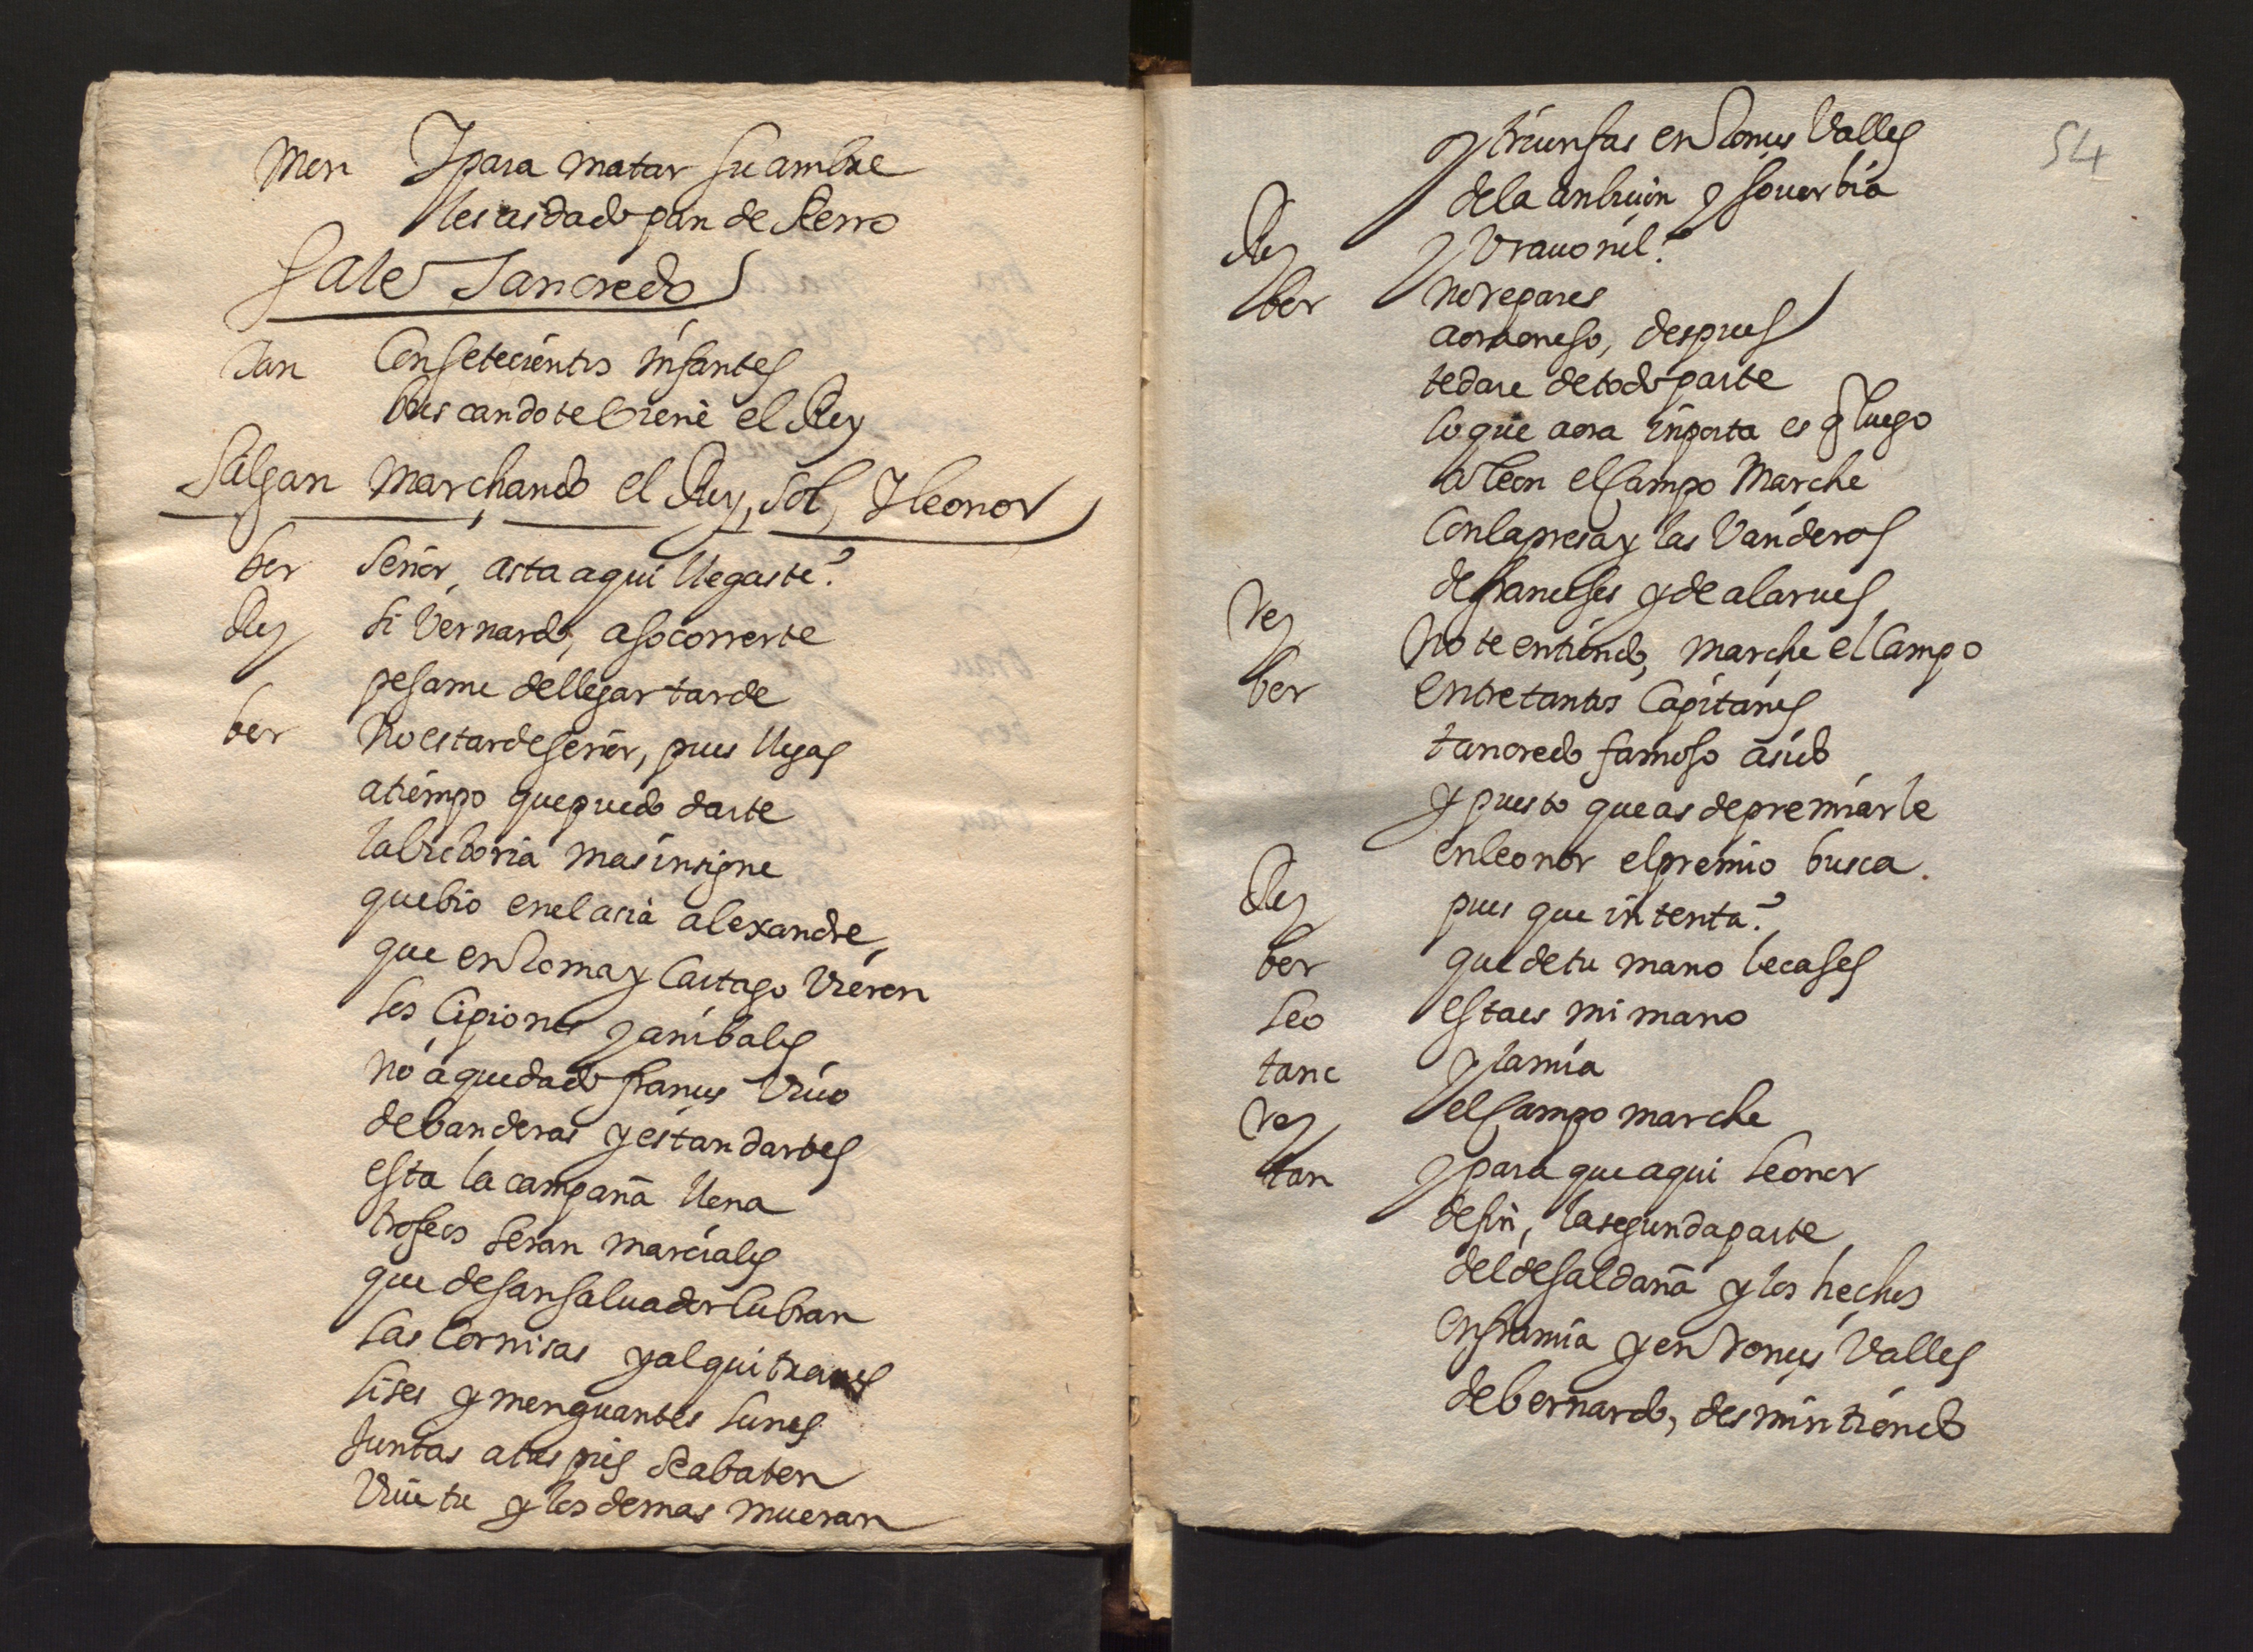 Men Y para matar su ambre
les as dado pan de Perro
Sale Tancredo
Tan Con setecientos infantes
buscandote biene el Rey
Salgan marchando el Rey, Sol, Y leonor
ber Señor, asta aqui llegaste?
Rey Si Vernardo, a socorrerte
pesame de llegar tarde
ber No es tarde señor, pues llegas
a tiempo que puedo darte
la bictoria mas insigne
que bio en el asia alexandre,
que en Roma y Cartago Vieron
los Cipiones y anibales
no a quedado frances Viuo
de banderas y estandartes
esta la campaña llena
trofeos seran marciales
que de san saluador cubran
las Cornisas y alquitraues
lises y menguantes lunas
Juntas a tus pies se abaten
Viue tu y los demas mueran
54
y triunfas en Ronces Valles
de la anbicion y souerbia
Rey y Vrauonel?
ber no repares
aora en eso, despues
te dare de todo parte
lo que aora inporta es q luego
a leon el Campo Marche
Con la presa y las Vanderas
de franceses y de alarues
rey No te entiendo, marche el Campo
ber entre tantos Capitanes
tancredo famoso a sido
y puesto que as de premiarle
en leonor el premio busca.
Rey pues que intenta?
ber que de tu mano le cases
Leo esta es mi mano
tanc y la mia
rey el Campo marche
tan y para que aqui Leonor
de fin, la segunda parte
del de saldaña y los hechos
en francia y en ronces Valles
de bernardo, desmintiendo